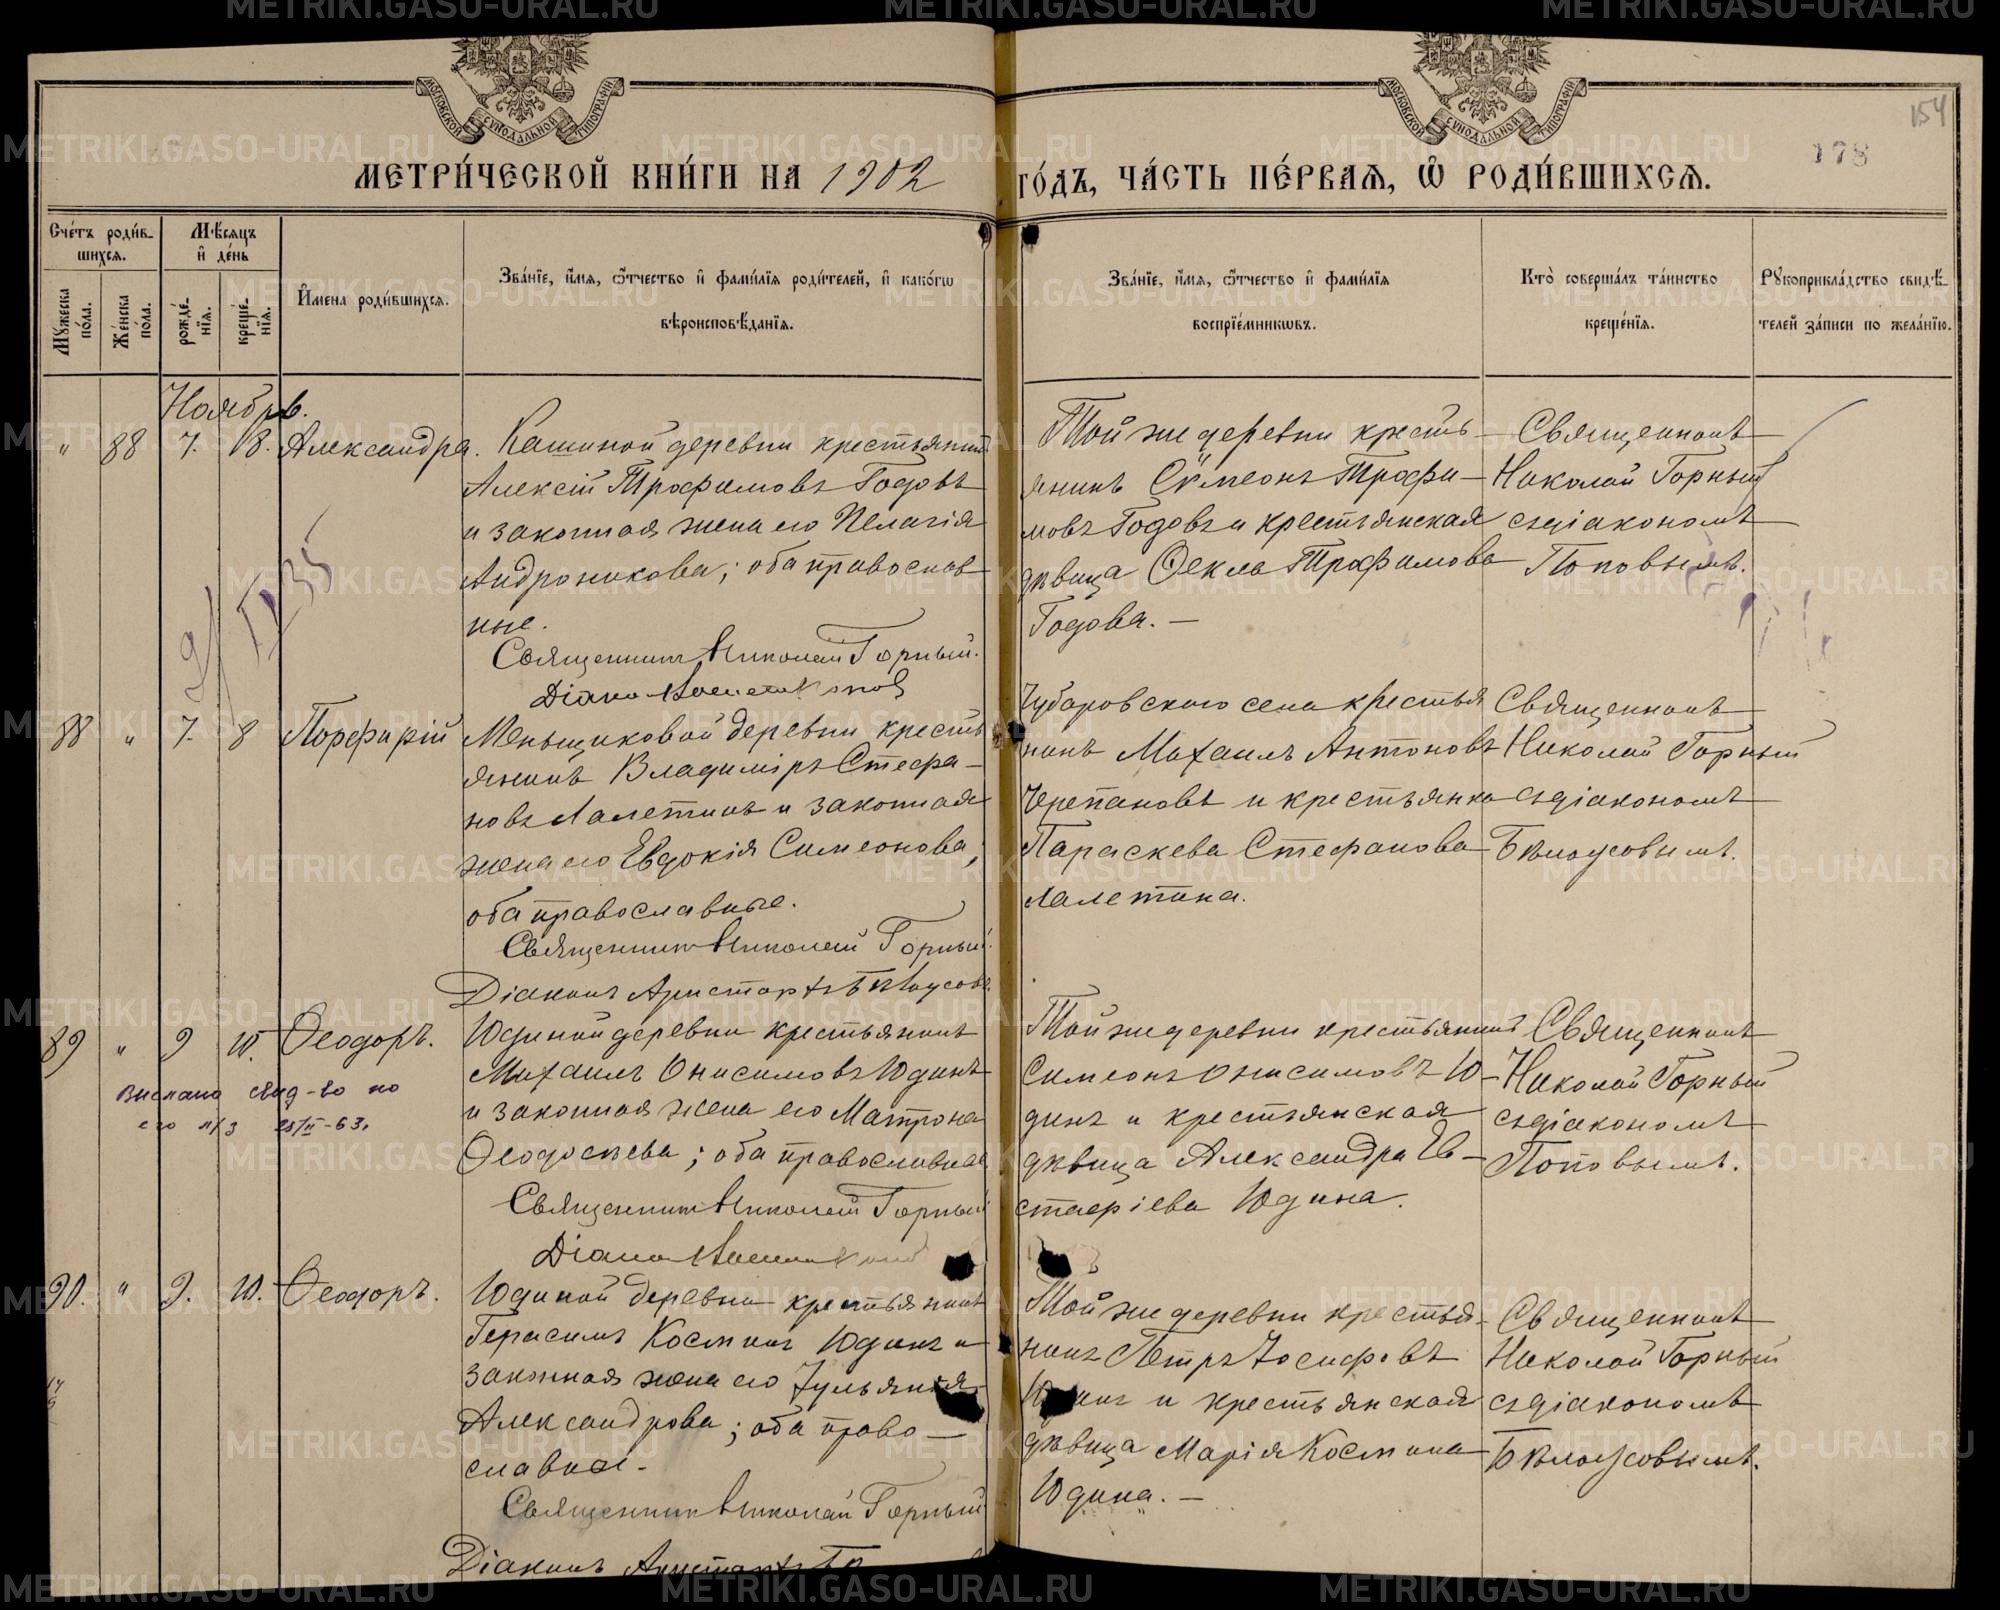 МЕТРИ́ЧЕСКОЙ КНИ́ГИ НА 1902 ГО́ДЪ, ЧА́СТЬ ПЕ́РВАЯ, Ѡ РОДИ́ВШИХСЯ.
154
178
МОСКОВСКОЙ СѴНОДАЛЬНОЙ ТИПОГРАФІИ
МОСКОВСКОЙ СѴНОДАЛЬНОЙ ТИПОГРАФІИ
Сче́тъ роди́в-
шихся.
Мꙋжеска по́ла.
Же́нска по́ла.
Мѣ́сяцъ и де́нь
рожде́-нїя.
креще́-нїя.
И҆мена роди́вшихся.
Зва́нїе, и҆́мя, ѻ҆́тчество и҆ фами́лїя роди́телей, и҆ како́гѡ
вѣроисповѣ́данїя.
Зва́нїе, и҆́мя, ѻ҆́тчество и҆ фами́лїя
воспрїе́мникѡвъ.
Кто̀ соверша́лъ та́инство
креще́нїя.
Рꙋкоприкла́дство свидѣ́-
телей за́писи по жела́нїю.
Ноябрь.
" 88 7. 8. Александра.
Кашиной деревни крестьянин
Алексій Трофимовъ Годовъ
и законная жена его Пелагія
Андроникова; оба православ
ные.
Священник Николай Горный.
Той же деревни кресть-
янинъ Сѵмеонъ Трофи-
мовъ Годовъ и крестьянская
дѣвица Ѳекла Трофимова
Годова. —
Священникъ
Николай Горный
съ діакономъ
Поповымъ.
88 " 7. 8 Порфирій
Меньщиковой деревни кресть
янинъ Владиміръ Стефа-
новъ Лалетинъ и законная
жена его Евдокія Симеонова,
оба православные.
Священник Николай Горный.
Діаконъ Аристархъ Бѣлоусовъ
Чубаровского села крестья
нинъ Михаилъ Антоновъ
Черепановъ и крестьянка
Параскева Стефанова
Лалетина.
Священникъ
Николай Горный
съ діакономъ
Бѣлоусовымъ.
89 " 9 10. Ѳеодоръ.
Выслано свид-во по
его л/з
Юдиной деревни крестьянинъ
Михаилъ Онисимовъ Юдинъ
и законная жена его Матрона
Ѳеодосіева; оба православные
Священник Николай Горный
Той же деревни крестьянинъ
Симеонъ Онисимовъ Ю-
динъ и крестьянская
дѣвица Александра Ев-
стафіева Юдина.
Священникъ
Николай Горный
съ діакономъ
Поповымъ.
90. " 9. 10. Ѳеодоръ.
Юдиной деревни крестьянинъ
Герасимъ Косминъ Юдинъ и
законная жена его Іульянія
Александрова; оба право-
славные.
Священник Николай Горный
Діаконъ Аристархъ
Той же деревни крестья-
нинъ Петръ Іосифовъ
Юдинъ и крестьянская
дѣвица Марія Космина
Юдина. —
Священникъ
Николай Горный
съ діакономъ
Бѣлоусовымъ.
METRIKI.GASO-URAL.RU